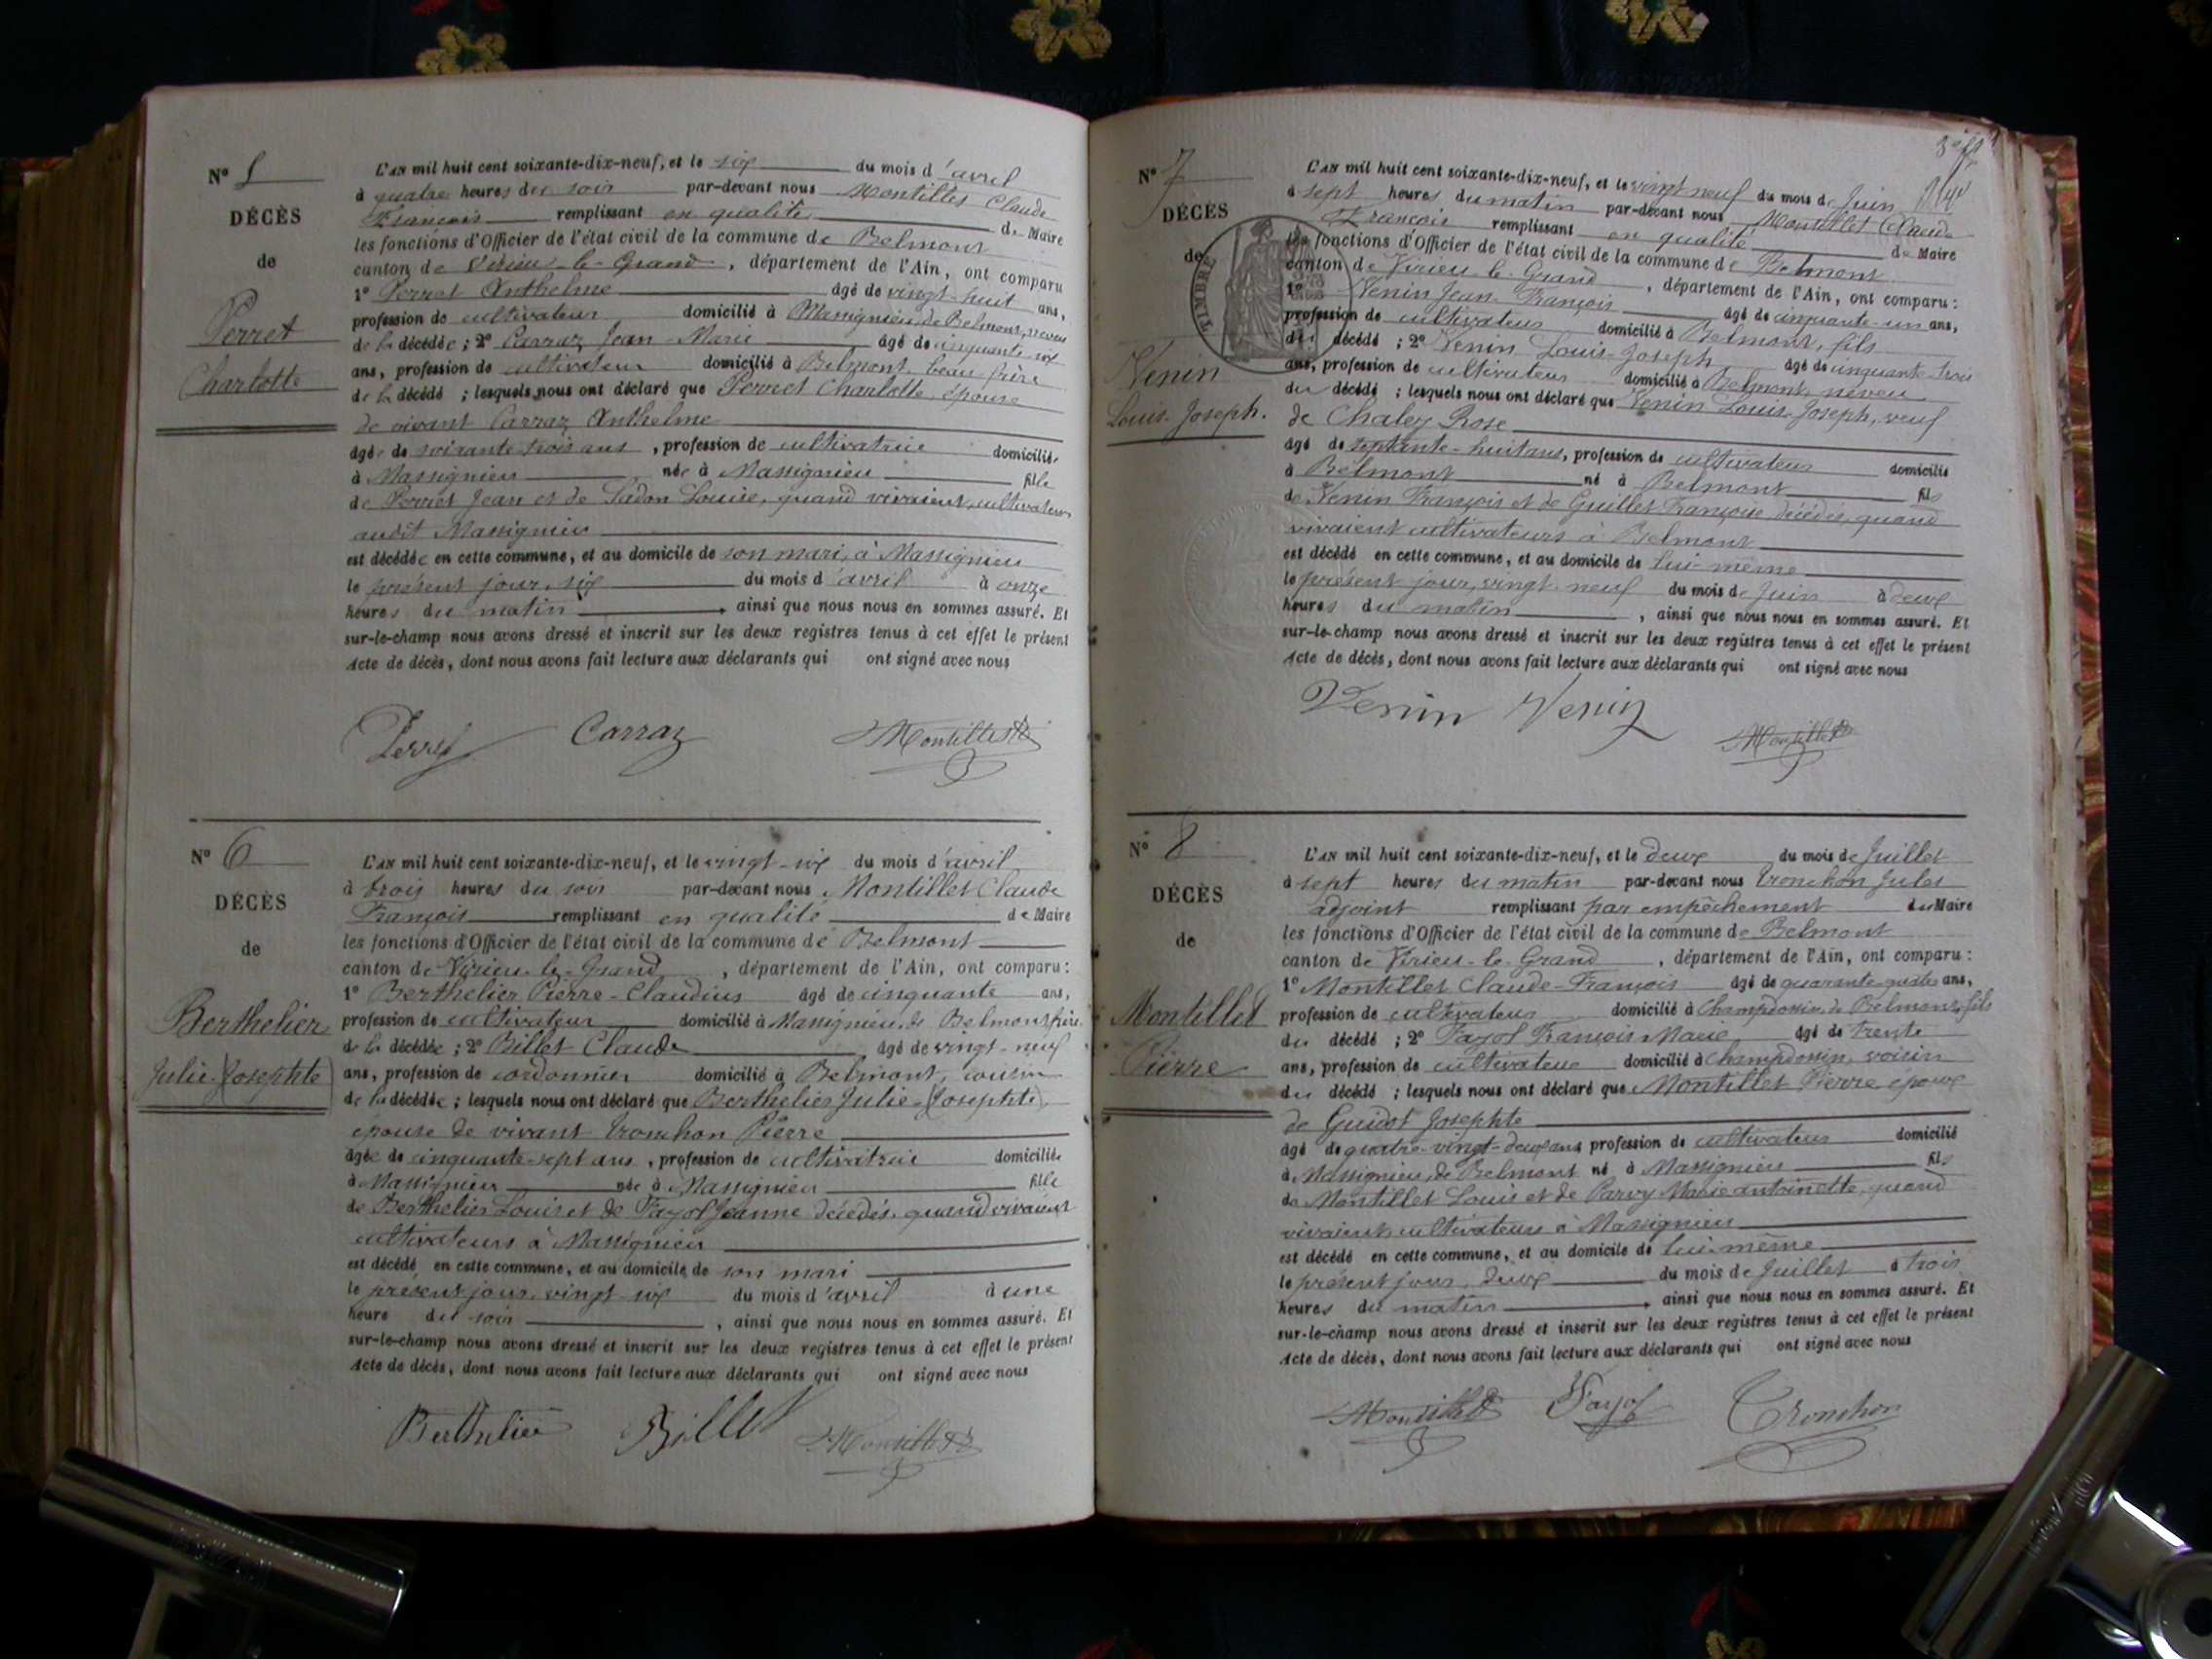 N° 5
DÉCÈS
de
Perret
Charlotte
L'AN mil huit cent soixante-dix-neuf, et le six du mois d'avril
à quatre heures du soir par-devant nous Montillet Claude
François remplissant en qualité de Maire
les fonctions d'Officier de l'état civil de la commune de Belmont
canton de Virieu-le-Grand, département de l'Ain, ont comparu
1° Perret Anthelme âgé de vingt-huit ans,
profession de cultivateur domicilié à Massignieu, de Belmont, neveu
de la décédée; 2° Carraz Jean-Marie âgé de cinquante-six
ans, profession de cultivateur domicilié à Belmont, beau frère
de la décédé; lesquels nous ont déclaré que Perret Charlotte, épouse
de vivant Carraz Anthelme
âgée de soixante trois ans, profession de cultivatrice domiciliée
à Massignieu née à Massignieu fille
de Perret Jean et de Louise, quand vivaient, cultivateurs
audit Massignieu
est décédée en cette commune, et au domicile de son mari, à Massignieu
le présent jour, six du mois d'avril à onze
heures du matin, ainsi que nous nous en sommes assuré. Et
sur-le-champ nous avons dressé et inscrit sur les deux registres tenus à cet effet le présent
Acte de décès, dont nous avons fait lecture aux déclarants qui ont signé avec nous
Perret Carraz Montillet
N° 6
DÉCÈS
de
Berthelier
Julie (Josephte)
L'AN mil huit cent soixante-dix-neuf, et le vingt-six du mois d'avril
à trois heures du soir par-devant nous Montillet Claude
François remplissant en qualité de Maire
les fonctions d'Officier de l'état civil de la commune de Belmont
canton de Virieu-le-Grand, département de l'Ain, ont comparu:
1° Berthelier Pierre-Claudius âgé de cinquante ans,
profession de cultivateur domicilié à Massignieu, de Belmont, frère
de la décédée; 2° Billet Claude âgé de vingt-neuf
ans, profession de cordonnier domicilié à Belmont, cousin
de la décédée; lesquels nous ont déclaré que Berthelier Julie (Josephte),
épouse de vivant Tronchon Pierre
âgée de cinquante-sept ans, profession de cultivatrice domiciliée
à Massignieu née à Massignieu fille
de Berthelier Louis et de Fayol Jeanne décédés, quand vivaient
cultivateurs à Massignieu
est décédé en cette commune, et au domicile de son mari
le présent jour, vingt-six du mois d'avril à une
heure du soir, ainsi que nous nous en sommes assuré. Et
sur-le-champ nous avons dressé et inscrit sur les deux registres tenus à cet effet le présent
Acte de décès, dont nous avons fait lecture aux déclarants qui ont signé avec nous
Berthelier Billet Montillet
N° 7
DÉCÈS
de
TIMBRE
Venin
Louis-Joseph.
L'AN mil huit cent soixante-dix-neuf, et le vingt-neuf du mois de Juin
à sept heures du matin par-devant nous Montillet Claude
François remplissant en qualité de Maire
les fonctions d'Officier de l'état civil de la commune de Belmont
canton de Virieu-le-Grand, département de l'Ain, ont comparu:
1° Venin Jean-François âgé de cinquante-un ans,
profession de cultivateur domicilié à Belmont, fils
du décédé; 2° Venin Louis-Joseph âgé de cinquante-trois
ans, profession de cultivateur domicilié à Belmont, neveu
du décédé; lesquels nous ont déclaré que Venin Louis-Joseph, veuf
de Chaley Rose
âgé de septante-huit ans, profession de cultivateur domicilié
à Belmont né à Belmont fils
de Venin François et de Guillet Françoise décédés, quand
vivaient cultivateurs à Belmont
est décédé en cette commune, et au domicile de lui-même
le présent jour, vingt-neuf du mois de Juin à deux
heures du matin, ainsi que nous nous en sommes assuré. Et
sur-le-champ nous avons dressé et inscrit sur les deux registres tenus à cet effet le présent
Acte de décès, dont nous avons fait lecture aux déclarants qui ont signé avec nous
Venin Venin Montillet
N° 8
DÉCÈS
de
Montillet
Pierre
L'AN mil huit cent soixante-dix-neuf, et le deux du mois de Juillet
à sept heures du matin par-devant nous Tronchon Jules
adjoint remplissant par empêchement du Maire
les fonctions d'Officier de l'état civil de la commune de Belmont
canton de Virieu-le-Grand, département de l'Ain, ont comparu:
1° Montillet Claude-François âgé de quarante-quatre ans,
profession de cultivateur domicilié à Champdossin, de Belmont, fils
du décédé; 2° Fayol François Marie âgé de trente
ans, profession de cultivateur domicilié à Champdossin, voisin
du décédé; lesquels nous ont déclaré que Montillet Pierre époux
de Guidot Josephte
âgé de quatre-vingt-deux ans, profession de cultivateur domicilié
à Massignieu, de Belmont né à Massignieu fils
de Montillet Louis et de Parvy Marie antoinette, quand
vivaient, cultivateurs à Massignieu
est décédé en cette commune, et au domicile de lui-même
le présent jour, deux du mois de Juillet à trois
heures du matin, ainsi que nous nous en sommes assuré. Et
sur-le-champ nous avons dressé et inscrit sur les deux registres tenus à cet effet le présent
Acte de décès, dont nous avons fait lecture aux déclarants qui ont signé avec nous
Montillet Fayol Tronchon